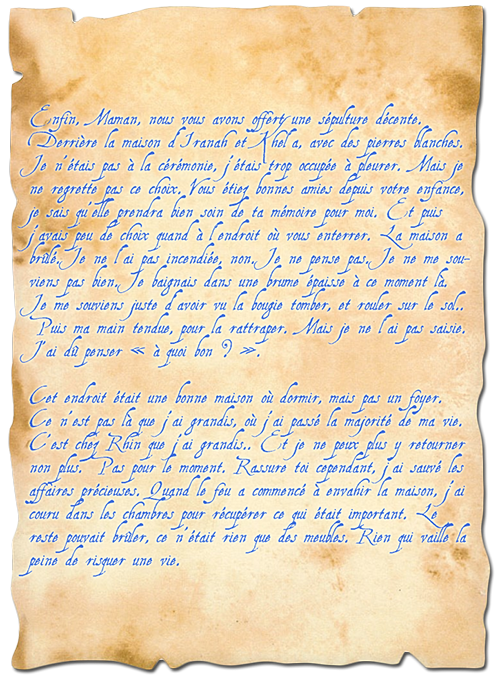 Enfin, Maman, nous vous avons offert une sépulture décente.
Derrière la maison d'Iranah et Khel'a, avec des pierres blanches.
Je n'étais pas à la cérémonie, j'étais trop occupée à pleurer. Mais je
ne regrette pas ce choix. Vous étiez bonnes amies depuis votre enfance,
je sais qu'elle prendra bien soin de ta mémoire pour moi. Et puis
j'avais peu de choix quand à l'endroit où vous enterrer. La maison a
brûlé. Je ne l'ai pas incendiée, non. Je ne pense pas. Je ne me sou-
viens pas bien. Je baignais dans une brume épaisse à ce moment là.
Je me souviens juste d'avoir vu la bougie tomber, et rouler sur le sol..
Puis ma main tendue, pour la rattraper. Mais je ne l'ai pas saisie.
J'ai dû penser « à quoi bon ? ».
Cet endroit était une bonne maison où dormir, mais pas un foyer.
Ce n'est pas là que j'ai grandis, où j'ai passé la majorité de ma vie.
C'est chez Rhin que j'ai grandis.. Et je ne peux plus y retourner
non plus. Pas pour le moment. Rassure toi cependant, j'ai sauvé les
affaires précieuses. Quand le feu a commencé à envahir la maison, j'ai
couru dans les chambres pour récupérer ce qui était important. Le
reste pouvait brûler, ce n'était rien que des meubles. Rien qui vaille la
peine de risquer une vie.